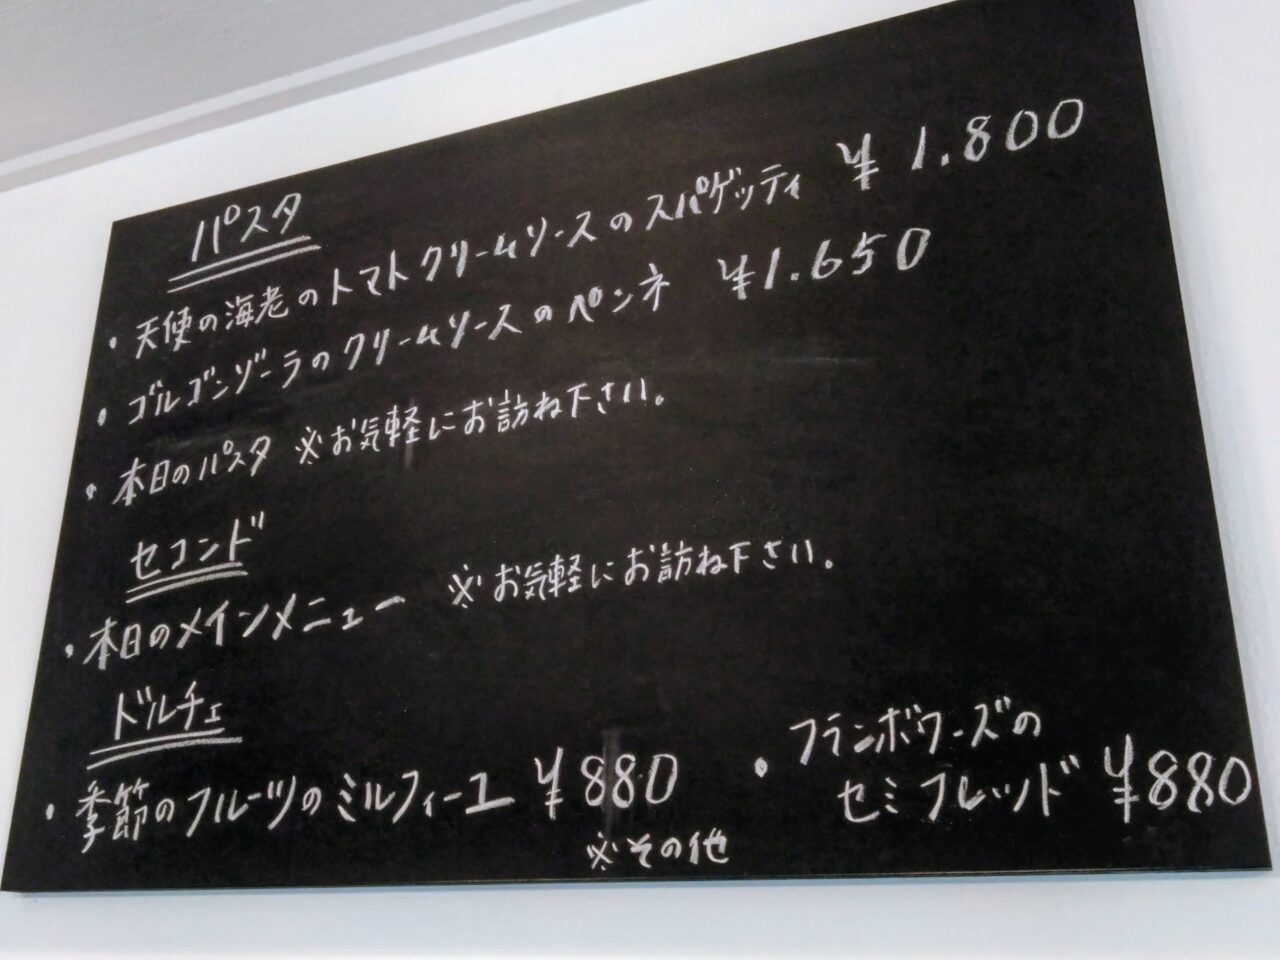 パスタ
・天使の海老のトマトクリームソースのスパゲッティ ¥1.800
・ゴルゴンゾーラのクリームソースのペンネ ¥1.650
・本日のパスタ ※お気軽にお訪ね下さい。
セコンド
・本日のメインメニュー ※お気軽にお訪ね下さい。
ドルチェ
・季節のフルーツのミルフィーユ ¥880
・フランボワーズの
セミフレッド ¥880
※その他